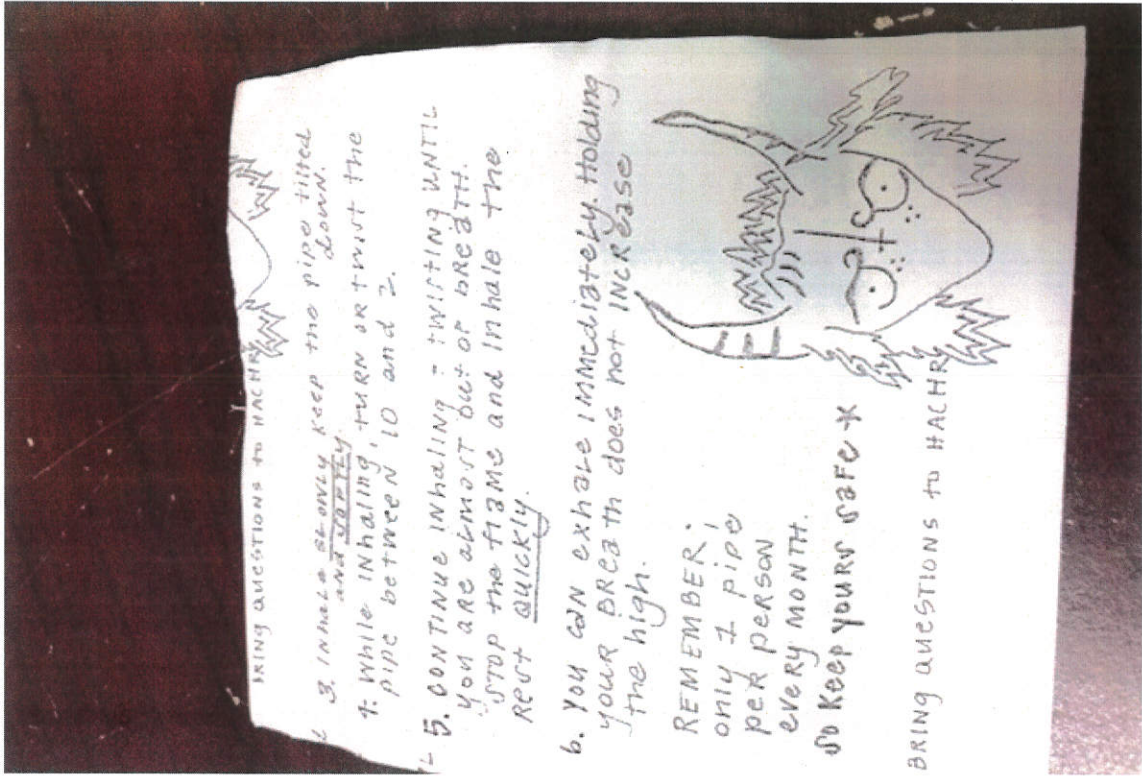 BRING QUESTIONS to HACHR
3. INHALE SLOWLY KEEP the pipe tilted
and SOFTLY down.
4. While INhaling, tURN OR twist the
pipe between 10 and 2.
5. CONTINUE INhaling = TWISTING UNTIL
you ARE almost out OF BREATH.
STOP the flame and INhale the
Rest QUICKLY.
6. YOU CAN exhale IMMediately. Holding
your BREATH does not INCREASE
the high.
REMEMBER;
only 1 pipe
per person
every MONTH.
SO KEEP YOURS SAFE *
BRING QUESTIONS to HACHR